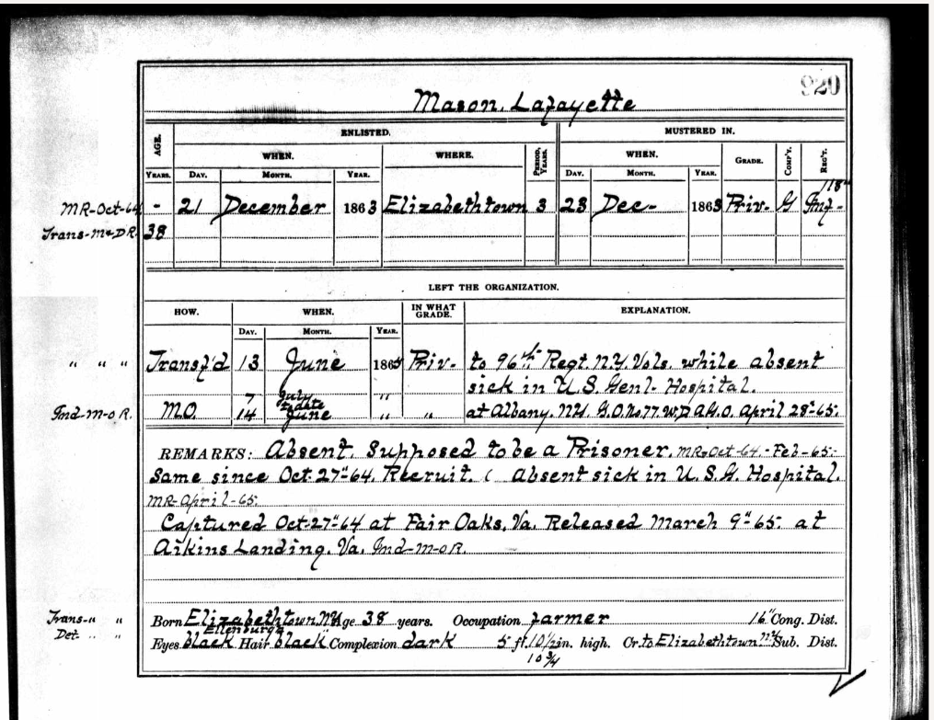 920
Mason, Lafayette
AGE. ENLISTED. MUSTERED IN.
WHEN. WHERE. PERIOD, YEARS. WHEN. GRADE. COMP'Y. REG'T.
YEARS. DAY. MONTH. YEAR. DAY. MONTH. YEAR.
118"
MR-Oct-64 - 21 December 1863 Elizabethtown 3 23 Dec- 1863 Priv- G Inf-
Trans-M&DR. 38
LEFT THE ORGANIZATION.
HOW. WHEN. IN WHAT GRADE. EXPLANATION.
DAY. MONTH. YEAR.
" " " Transf'd 13 June 1865 Priv- to 96th Regt. N.Y. Vols. while absent
sick in U.S. Genl- Hospital.
7 July "
to date
Ind-m-o R. M.O. 14 June " " at Albany. N.Y. G.O. No 77. W.D.A.G.O. April 28"-65.
REMARKS: Absent. Supposed to be a Prisoner. MR-Oct-64.-Feb-65.
Same since Oct. 27"-64. Recruit. ( Absent sick in U.S.G. Hospital.
MR-April-65.
Captured Oct-27"-64 at Fair Oaks, Va. Released March 9"-65. at
Aikins Landing. Va. Ind-m-o R.
Trans-" " Born Elizabethtown, N.Y. Age 38 years. Occupation farmer 16" Cong. Dist.
Ellenburgh
Det. " " Eyes black Hair black Complexion dark 5 ft. 10 1/2 in. high. Cr. to Elizabethtown N.Y. Sub. Dist.
10 3/4